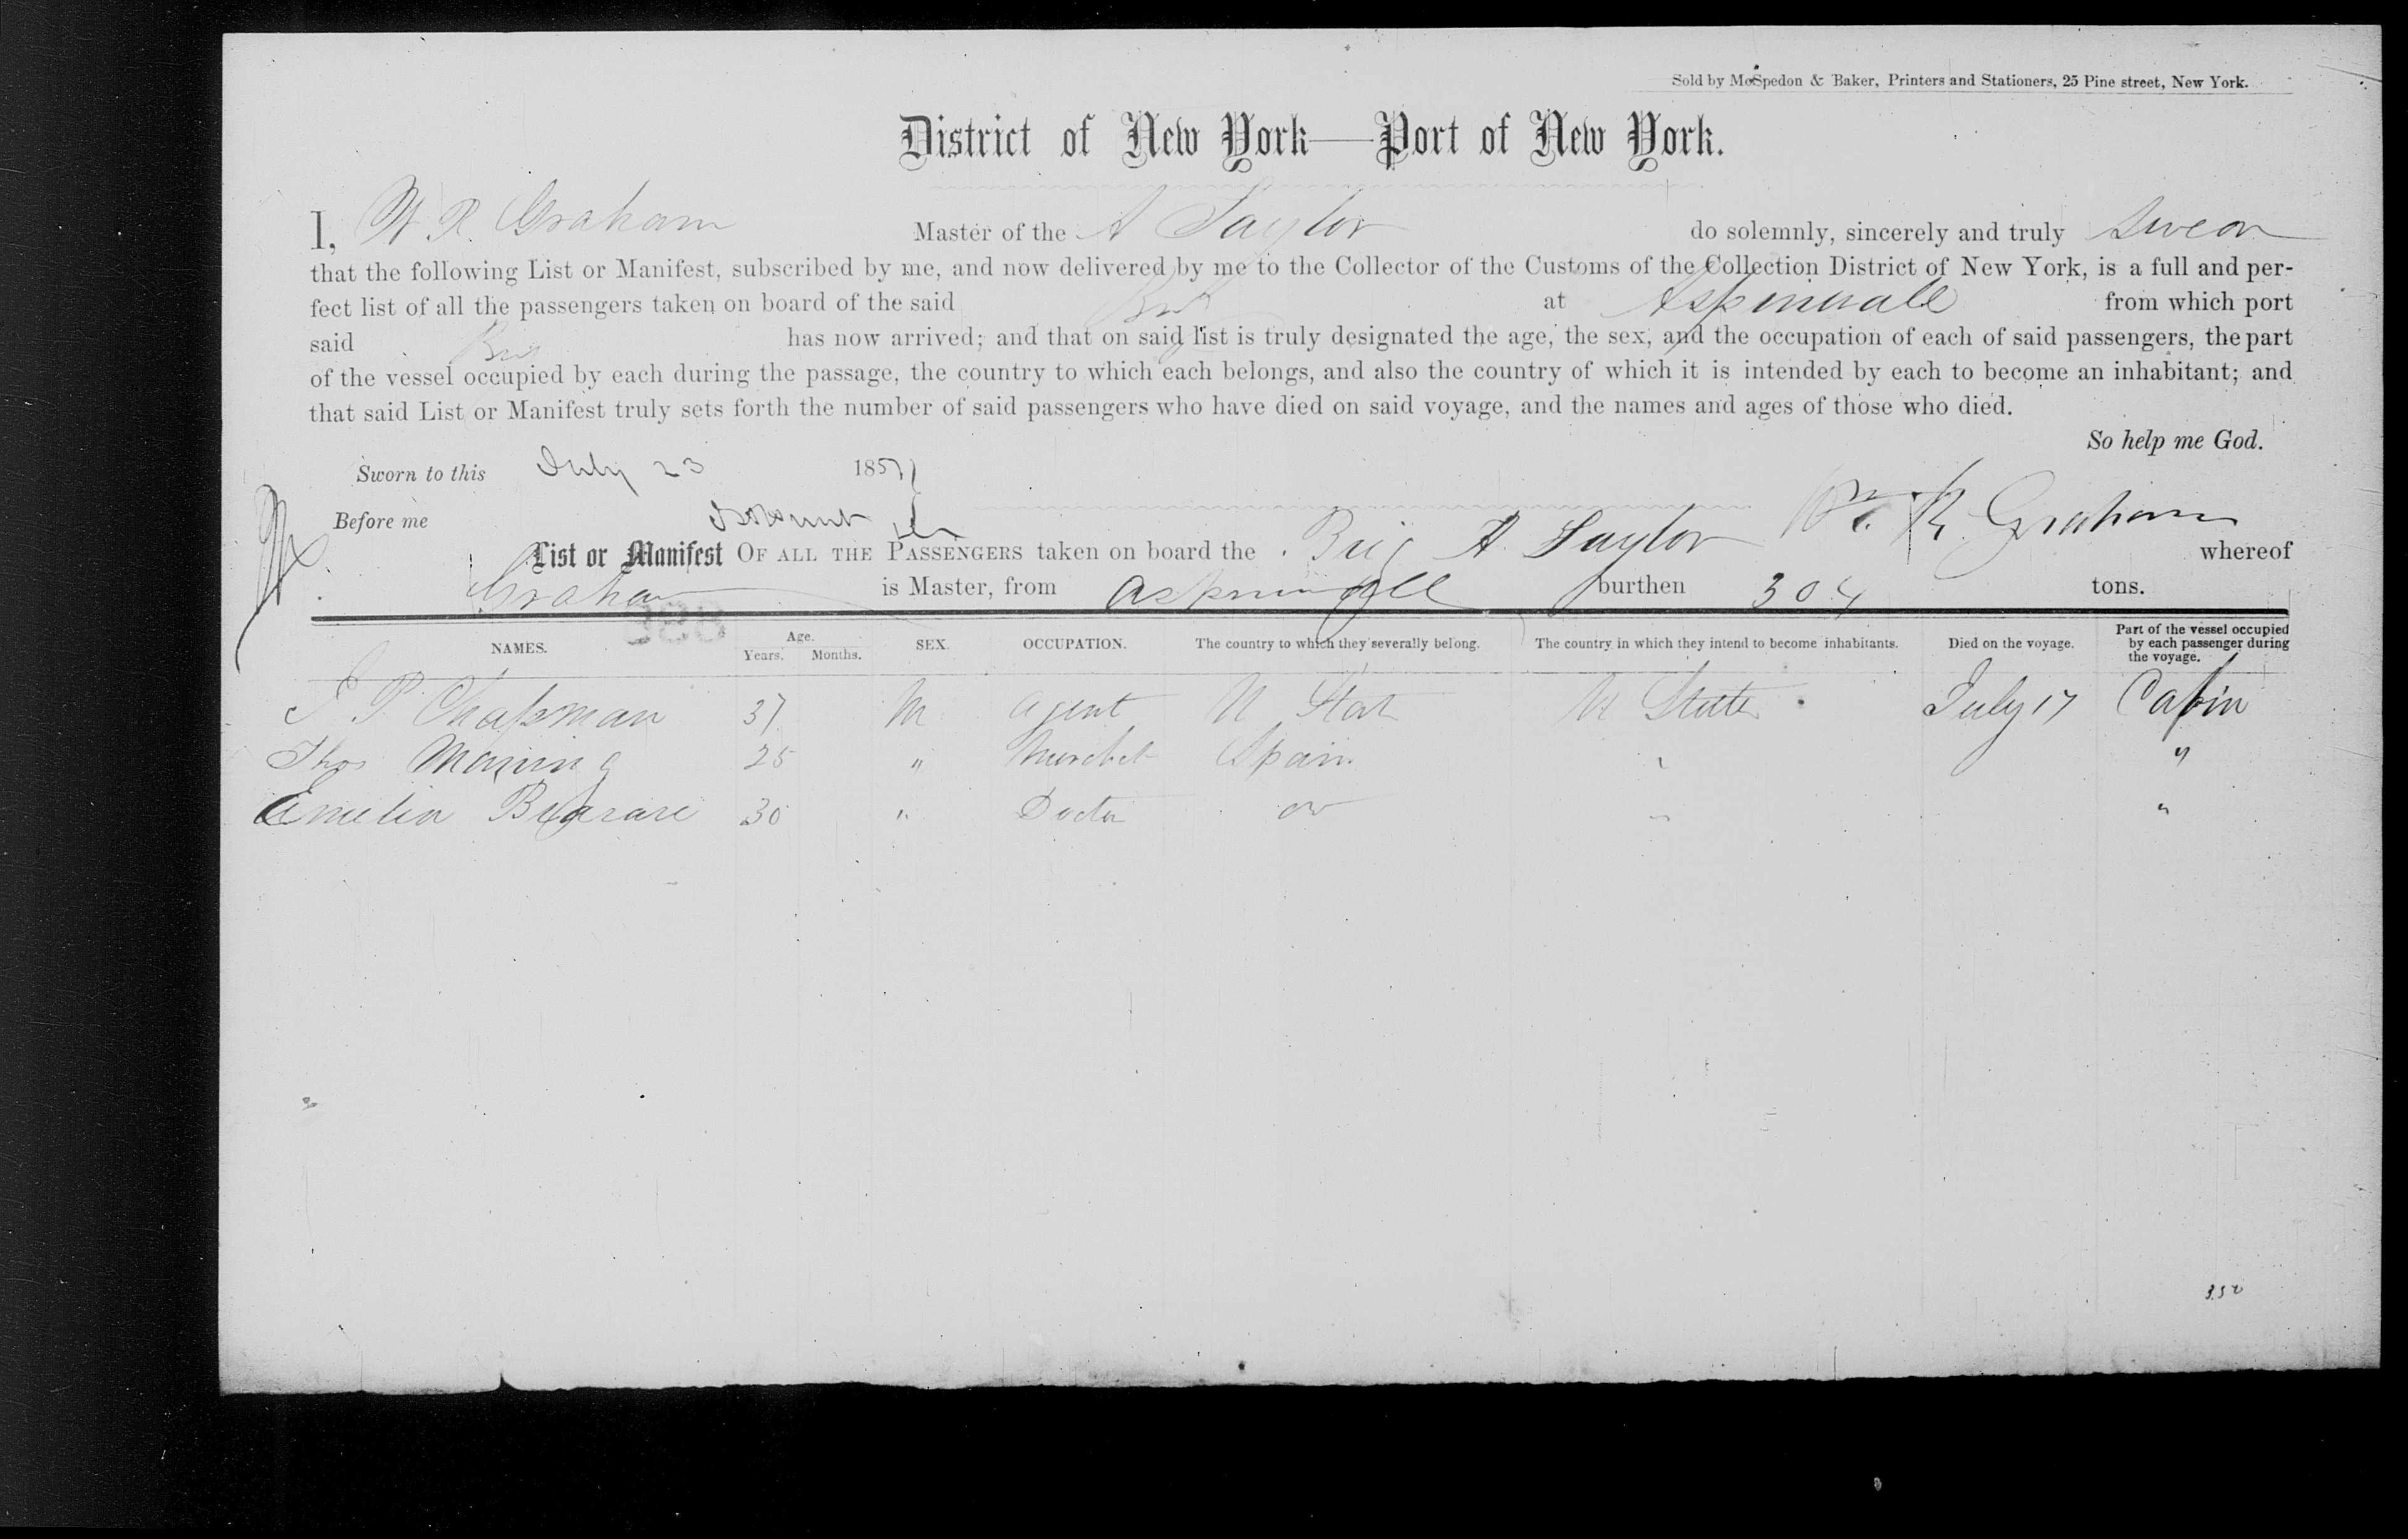 Sold by McSpedon & Baker, Printers and Stationers, 25 Pine street, New York.
District of New York—Port of New York.
I, W. R. Graham Master of the A Taylor do solemnly, sincerely and truly swear
that the following List or Manifest, subscribed by me, and now delivered by me to the Collector of the Customs of the Collection District of New York, is a full and per-
fect list of all the passengers taken on board of the said Brig at Aspinwall from which port
said Brig has now arrived; and that on said list is truly designated the age, the sex, and the occupation of each of said passengers, the part
of the vessel occupied by each during the passage, the country to which each belongs, and also the country of which it is intended by each to become an inhabitant; and
that said List or Manifest truly sets forth the number of said passengers who have died on said voyage, and the names and ages of those who died.
So help me God.
Sworn to this July 23 1857
Before me Wm. R. Graham
List or Manifest OF ALL THE PASSENGERS taken on board the Brig A. Taylor whereof
Graham is Master, from Aspinwall burthen 304 tons.
NAMES. Age. Years. Months. SEX. OCCUPATION. The country to which they severally belong. The country in which they intend to become inhabitants. Died on the voyage. Part of the vessel occupied by each passenger during the voyage.
P Chapman 37 M Agent U Stat U States July 17 Cabin
Thos Maning 25 " Mercht Spain " "
Emelia 30 " Doctor " "
350